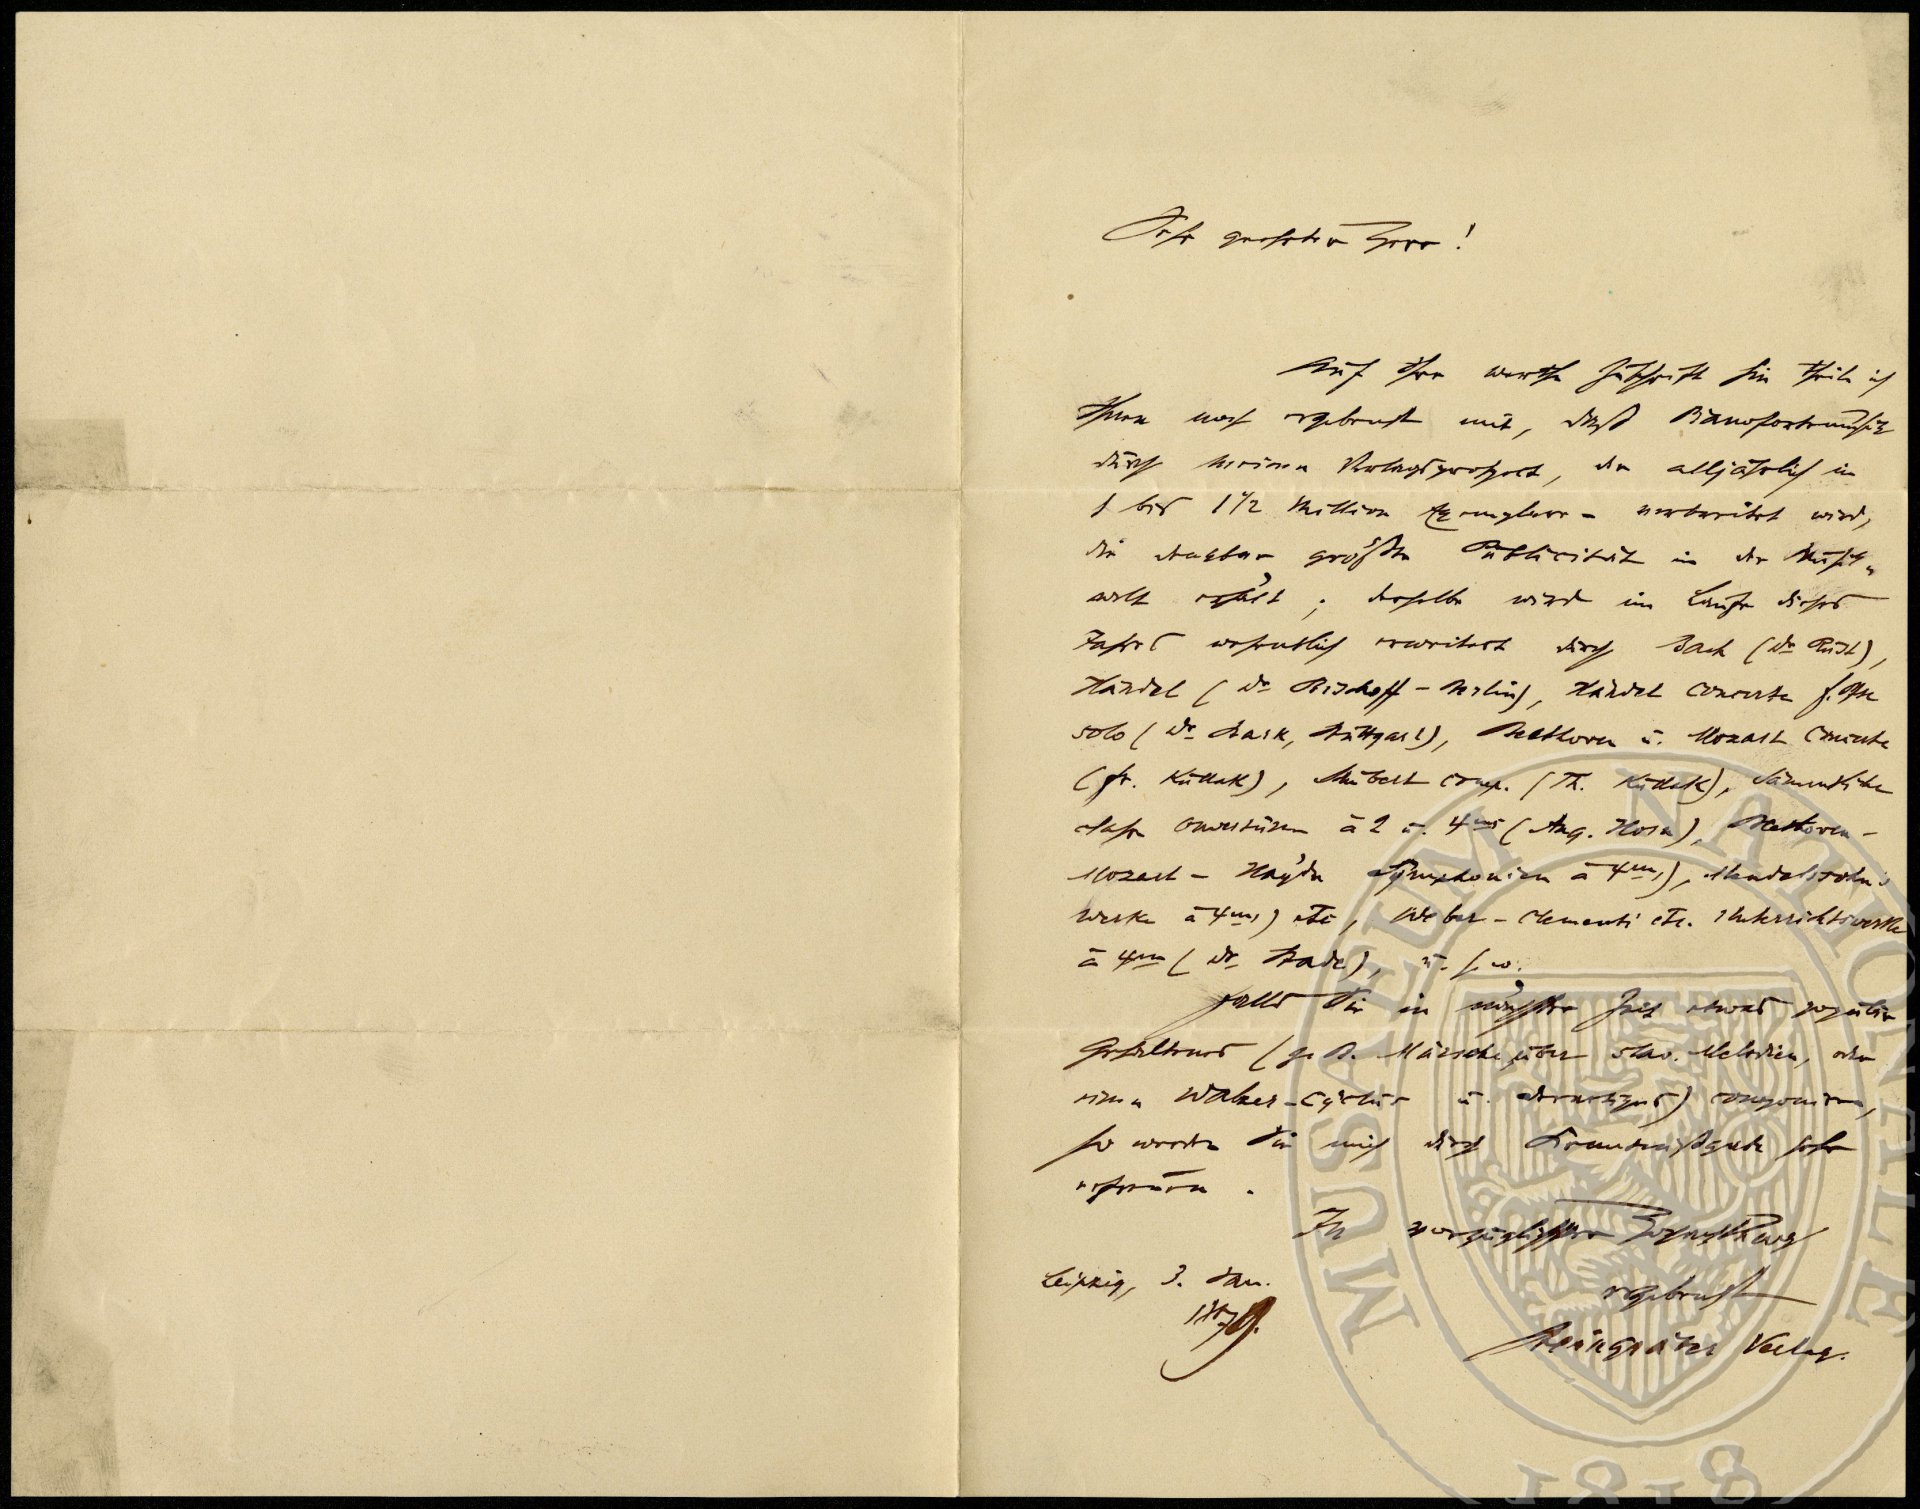 Sehr geehrter Herr!
Auf Ihre werthe Zuschrift hin theile ich
Ihnen noch ergebenst mit, daß Pianofortemusik
durch meinen Verlagsprospect, der alljährlich in
1 bis 1 1/2 Million Exemplare - verbreitet wird,
die denkbar größte Publicität in der Musik-
welt erhält; derselbe wird im Laufe dieses
Jahres wesentlich erweitert durch Bach (Dr Rust),
Händel (Dr Bischoff - Berlin), Händel Concerte f. Pfte
solo (Dr Stark, Stuttgart), Beethoven u. Mozart Concerte
(Fr. Kullak), Schubert comp. (Th. Kullak), Sämmtliche
Ouvertüren à 2 u. 4ms (Aug. Horn), Beethoven-
Mozart - Haydn Symphonien à 4ms), Mendelssohn's
Werke à 4ms) etc, Weber - Clementi etc. Unterrichtswerke
à 4ms (Dr Stade), u. s. w.
Falls Sie in nächster Zeit etwas populär
Gehaltenes (z. B. Märsche über slav. Melodien, oder
einen Walzer-Cyclus u. derartiges) componiren,
so werden Sie mich durch sehr
erfreuen.
In vorzüglichster Hochachtung
ergebenst
Leipzig, 3. Jan.
1879.
Steingräber Verlag.
MUSAEUM NATIONALE
1818